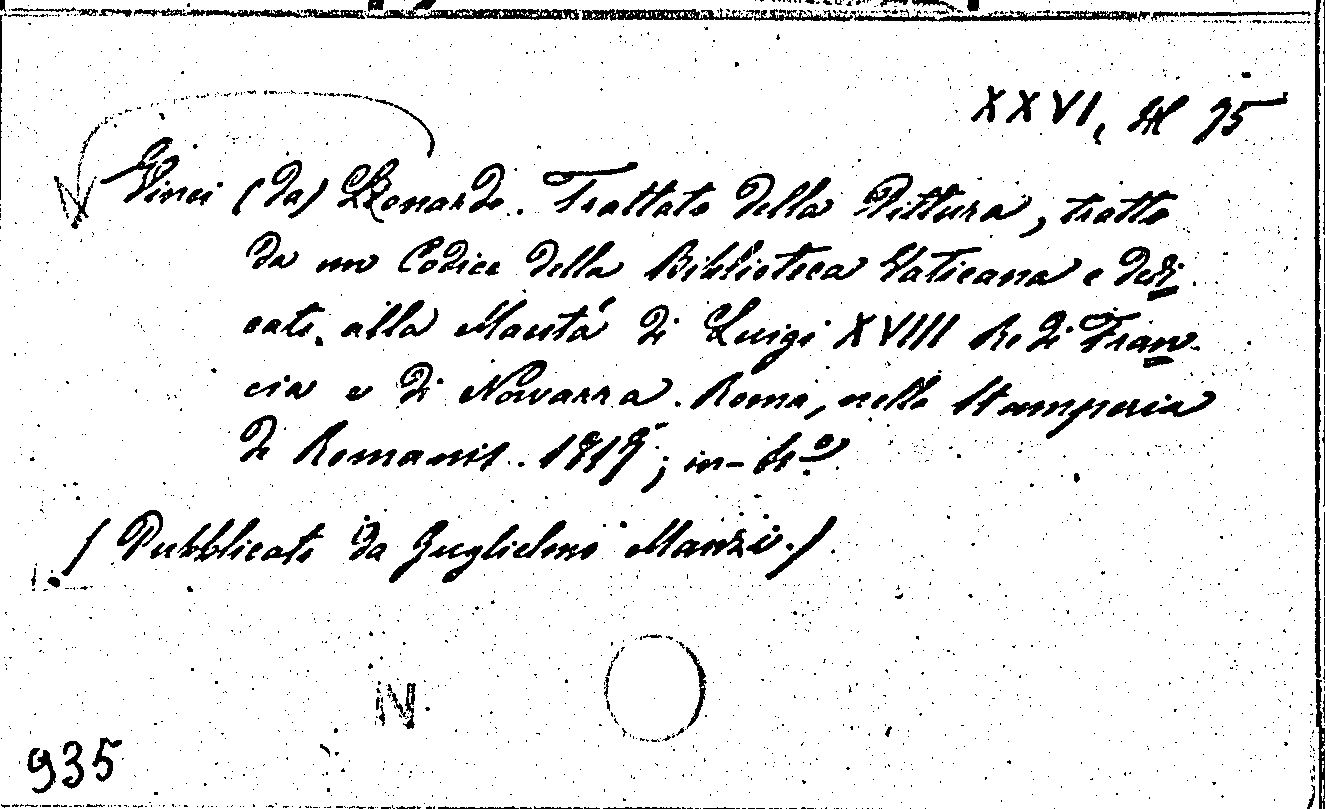 XXVI, M 75
Vinci (da) Leonardo. Trattato della Pittura, tratto
da un Codice della Biblioteca Vaticana e dedi
cato alla Maestá di Luigi XVIII Re di Fran-
cia e di Navarra. Roma, nella Stamperia
de Romanis. 1817; in-4º
(Pubblicato da Guglielmo Manzi.)
N
935